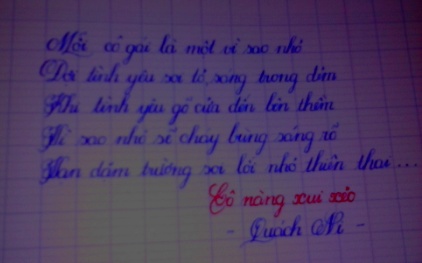 Mỗi cô gái là một vì sao nhỏ
Đợi tình yêu soi tỏ, sáng trong đêm
Khi tình yêu gõ cửa đến bên thềm
Vì sao nhỏ sẽ cháy bừng sáng rõ
Vạn dặm trường soi lối nhỏ thiên thai...
Cô nàng xui xẻo
- Quách Ni -